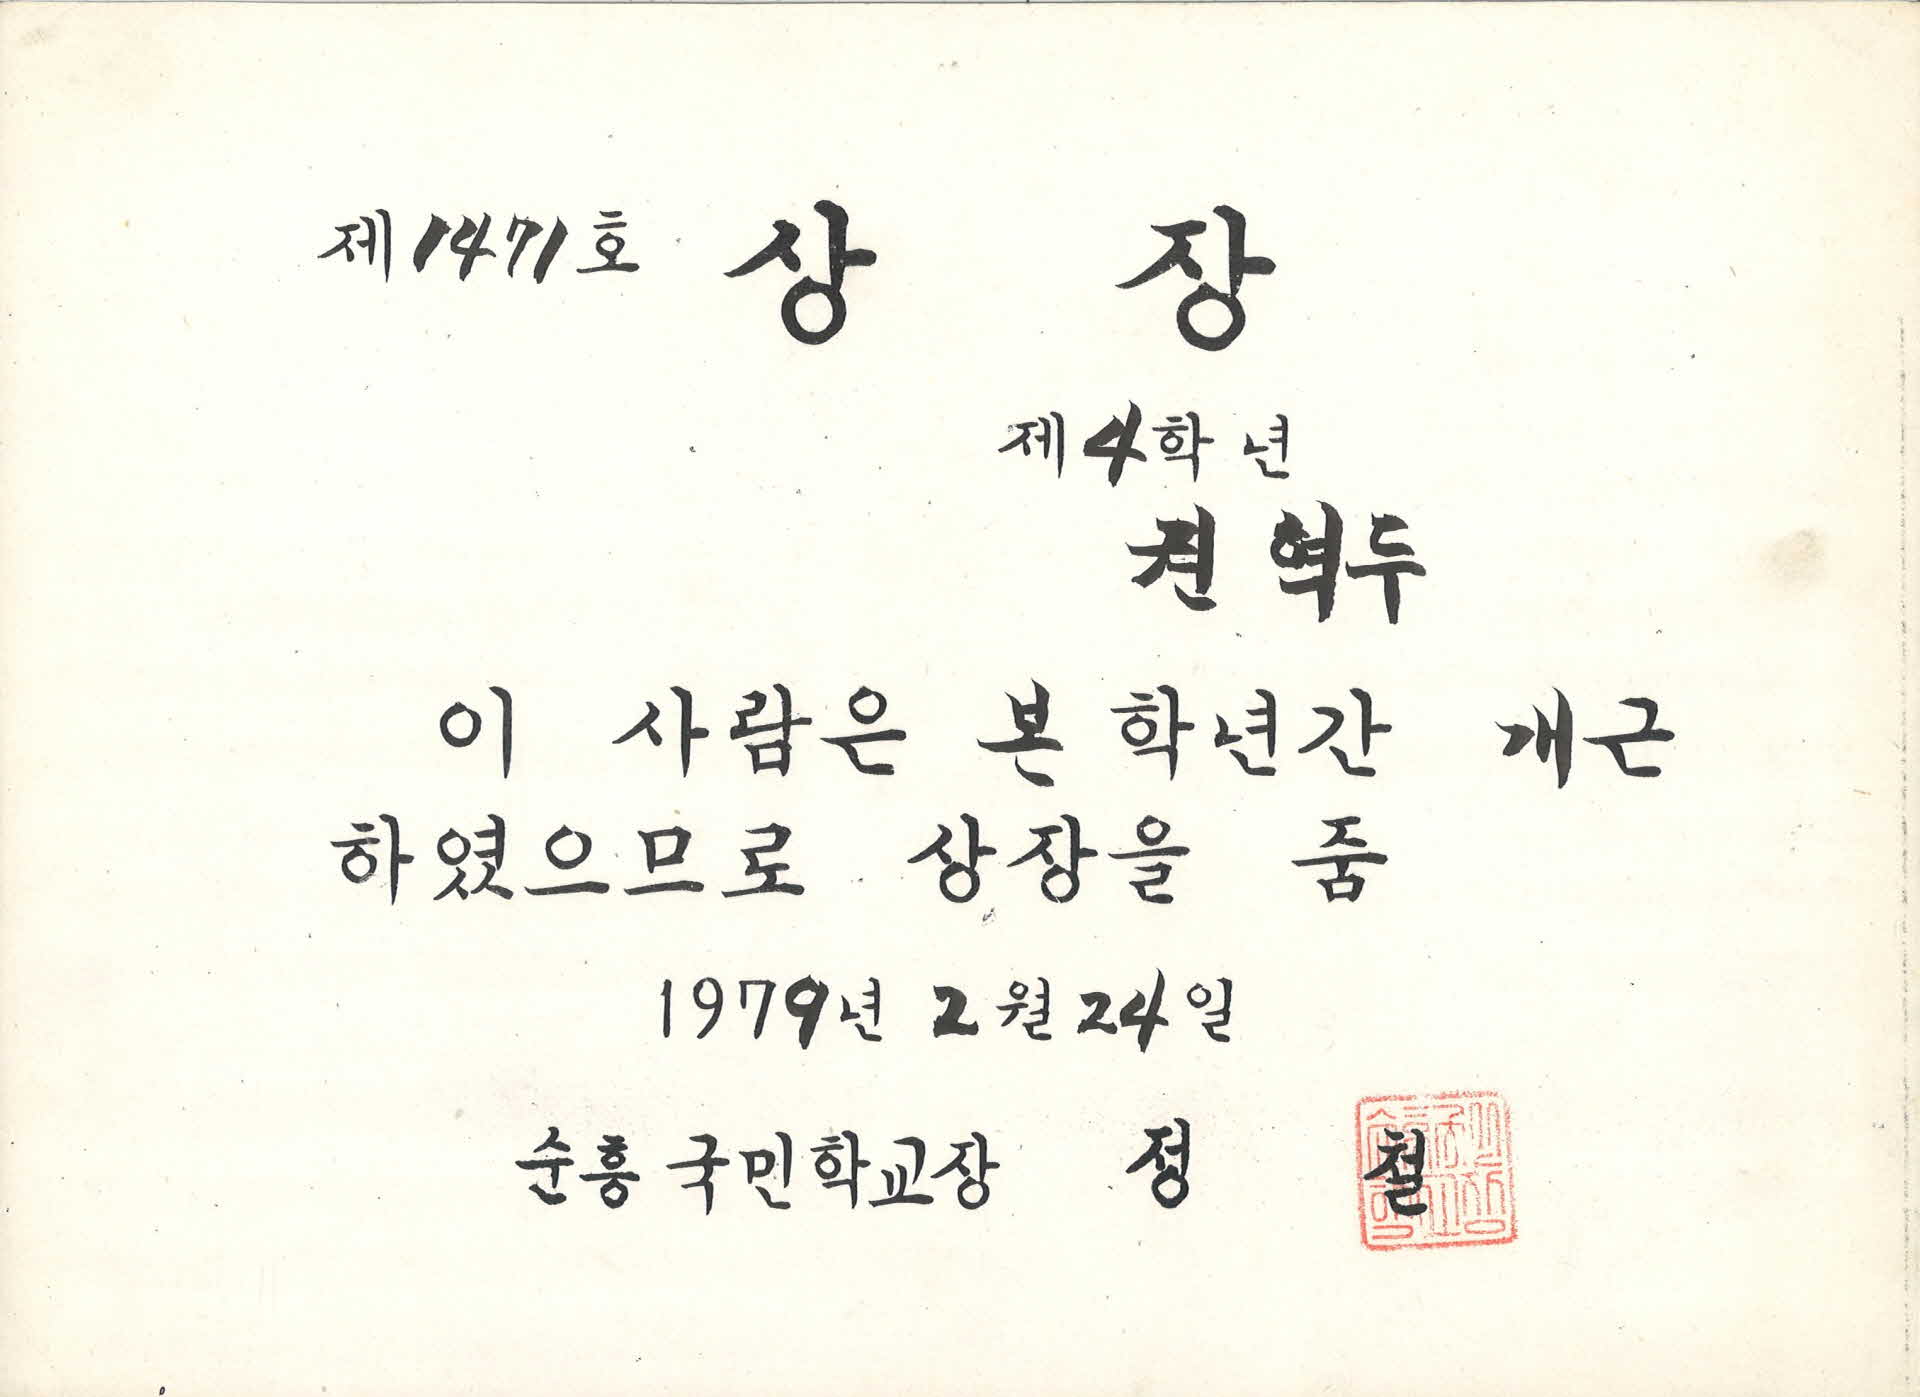 제1471호 상 장
제4학년
권 혁두
이 사람은 본 학년간 개근
하였으므로 상장을 줌
1979년 2월 24일
순흥 국민학교장 정 철